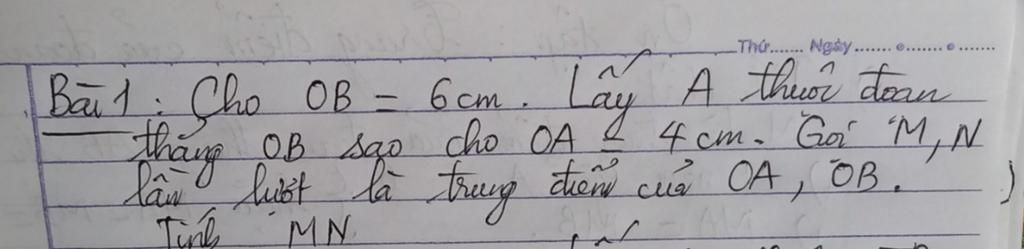 Thứ....... Ngày........................
Bài 1 : Cho OB = 6cm. Lấy A thuộc đoạn
thẳng OB sao cho OA = 4cm. Gọi M, N
lần lượt là trung điểm của OA, OB.
Tính MN